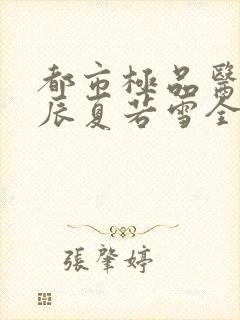 都市極品醫
辰夏若雪全
張肇婷